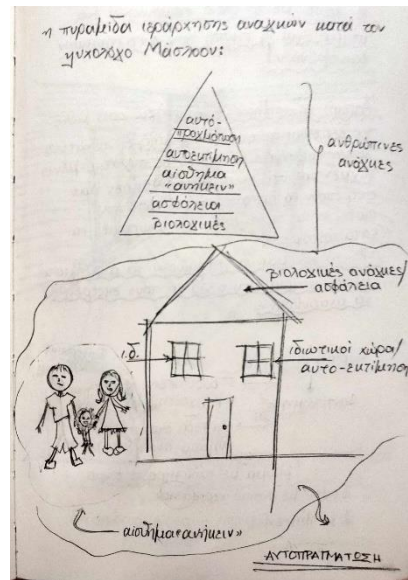 η πυραμίδα ιεράρχησης αναγκών κατά τον
ψυχολόγο Μάσλοου:
αυτό-
πραγμάτωση
αυτοεκτίμηση
αίσθημα
«ανήκειν»
ασφάλεια
βιολογικές
ανθρώπινες
ανάγκες
βιολογικές ανάγκες/
ασφάλεια
ι.δ.
ιδιωτικοί χώροι/
αυτο-εκτίμηση
αίσθημα «ανήκειν»
ΑΥΤΟΠΡΑΓΜΑΤΩΣΗ